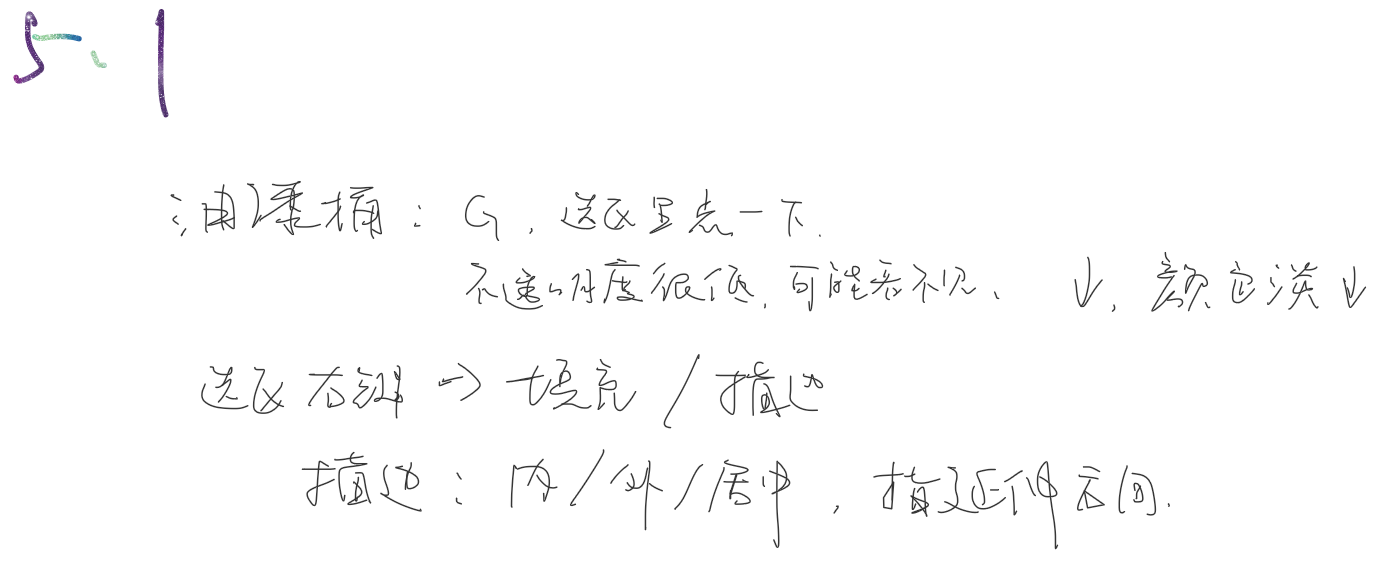 5、1
油漆桶：G，选区里点一下.
不透明度很低，可能看不见、 ↓，颜色淡↓
选区右键 → 填充 / 描边
描边：内/外/居中，指延伸方向.